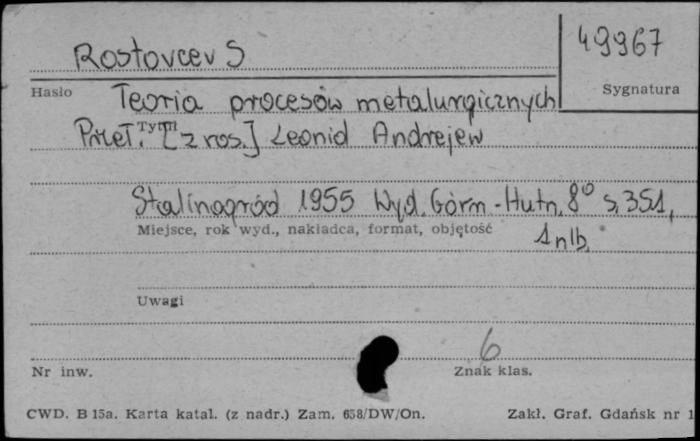 Rostovcev S
49967
Hasło
Sygnatura
Teoria procesów metalurgicznych
Tytuł
Przeł. [z ros.] Leonid Andrejew
Stalinogród 1955 Wyd. Górn.-Hutn. 8° s. 351,
Miejsce, rok wyd., nakładca, format, objętość
1 nlb.
Uwagi
6
Nr inw.
Znak klas.
CWD. B 15a. Karta katal. (z nadr.) Zam. 658/DW/On.
Zakł. Graf. Gdańsk nr 1